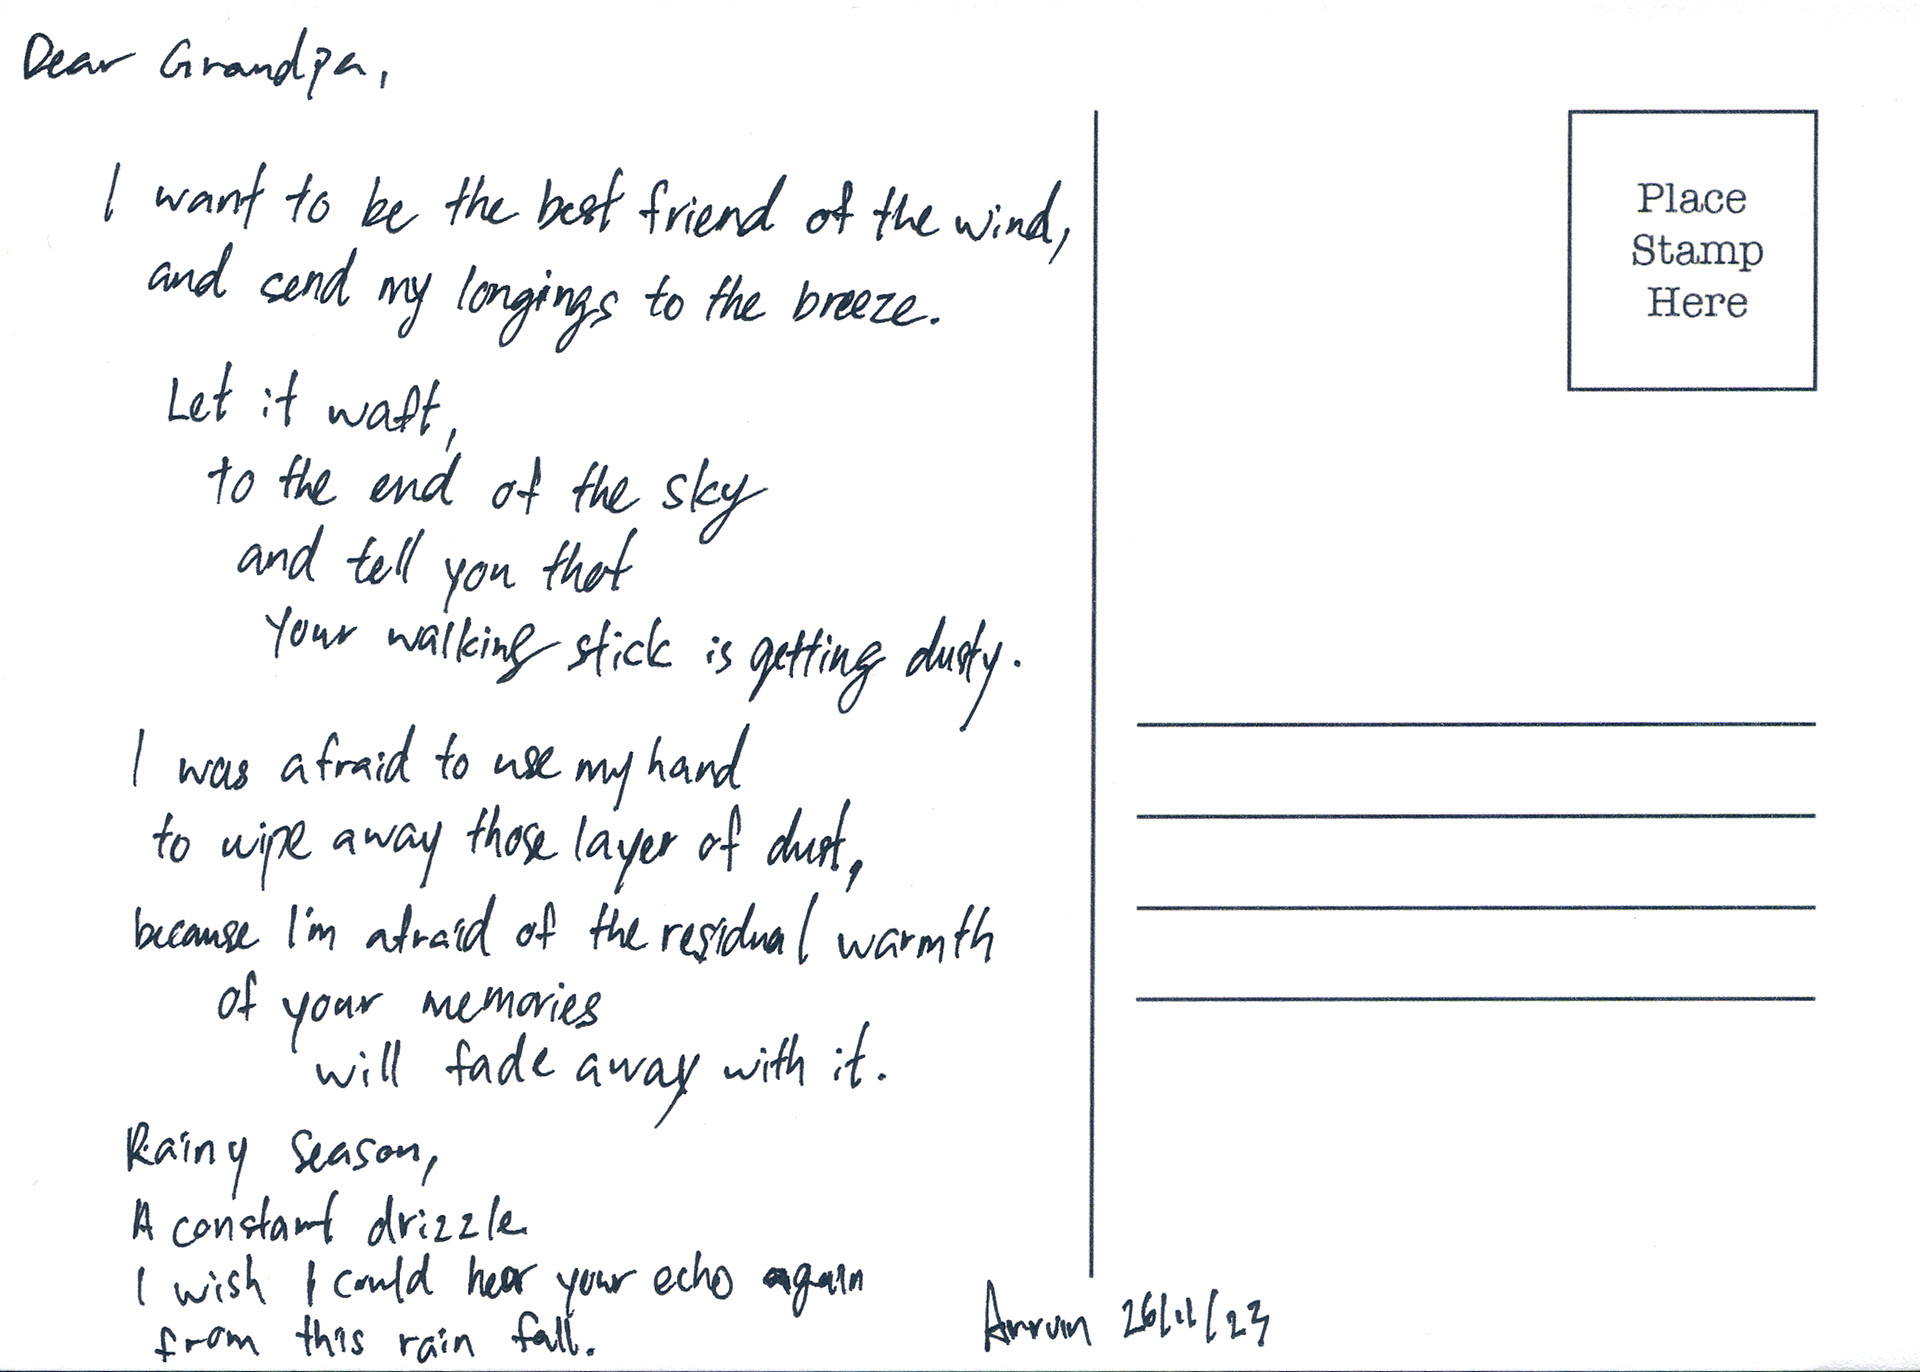 Dear Grandpa,
I want to be the best friend of the wind,
and send my longings to the breeze.
Let it waft,
to the end of the sky
and tell you that
your walking stick is getting dusty.
I was afraid to use my hand
to wipe away those layer of dust,
because I'm afraid of the residual warmth
of your memories
will fade away with it.
Rainy season,
A constant drizzle
I wish I could hear your echo again
from this rain fall.
26/11/23
Place
Stamp
Here